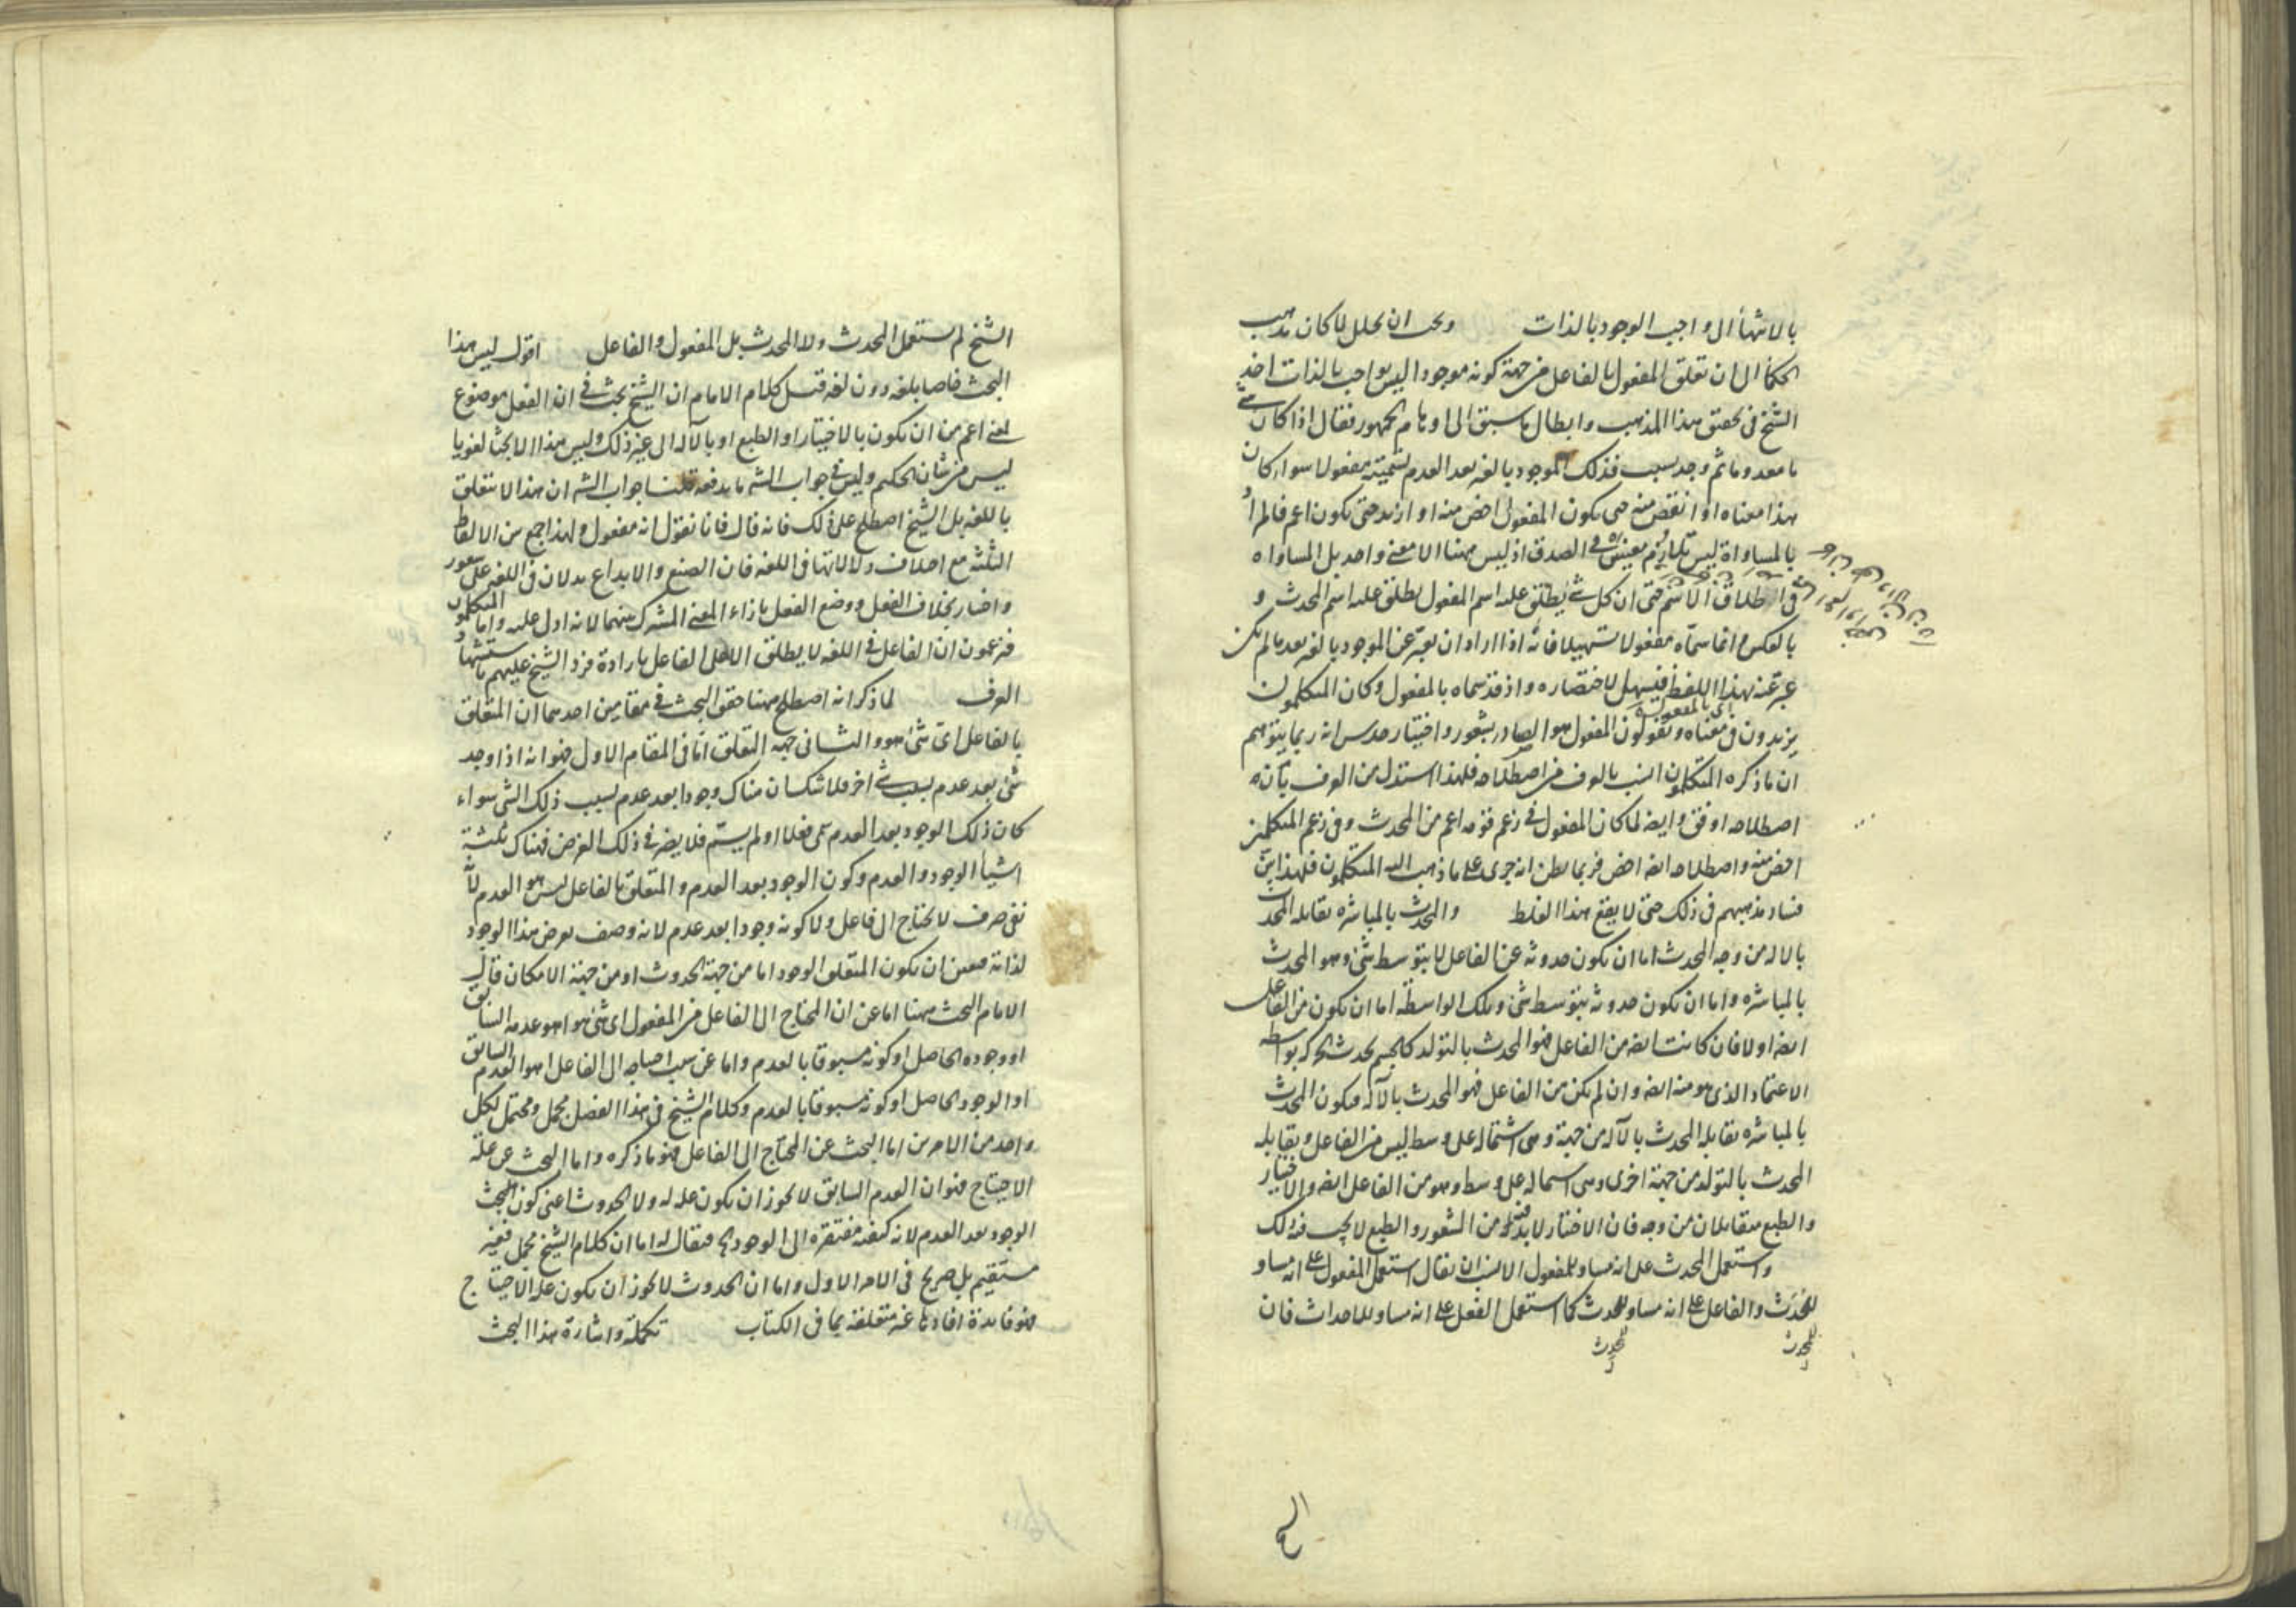 بالانتهاء الى واجب الوجود بالذات ويجب ان يحلل لما كان مذهب
الحكماء الى ان تعلق المفعول بالفاعل من جهة كونه موجودا ليس بواجب بالذات اخذ
الشيخ فى تحقيق هذا المذهب وابطال ما سبق الى اوهام الجمهور فقال اذا كان شئ
ما معدوما ثم وجد بسبب فذلك الموجود بالغير بعد العدم نسميه مفعولا سواء كان
هذا معناه او انقص منه حتى يكون المفعول اخص منه او ازيد حتى يكون اعم فالمراد
بالمساواة ليس تلازم معينين فى الصدق اذ ليس ههنا الا معنى واحد بل المساواة
فى اطلاق الاسم حتى ان كل شئ يطلق عليه اسم المفعول يطلق عليه اسم المحدث و
بالعكس وانما سماه مفعولا تسهيلا فانه اذا اراد ان يعبر عن الموجود بالغير بعد ما لم يكن
عبر عنه بهذا اللفظ فيسهل لاختصاره واذ قد سماه بالمفعول وكان المتكلمون
يزيدون فى معناه ويقولون المفعول هو الصادر بشعور واختيار حدس انه ربما يتوهم
ان ما ذكره المتكلمون انسب بالعرف من اصطلاحه فلهذا استدل من العرف بان
اصطلاحه اوفق وايضا لما كان المفعول فى زعم قومه اعم من المحدث وفى زعم المتكلمين
اخص منه واصطلاحه ايضا اخص فربما يظن انه جرى على ما ذهب اليه المتكلمون فلهذا بين
فساد مذهبهم فى ذلك حتى لا يقع هذا الغلط والمحدث بالمباشرة يقابله المحدث
بالالة من وجه المحدث اما ان يكون حدوثه عن الفاعل لا بتوسط شئ وهو المحدث
بالمباشرة واما ان يكون حدوثه بتوسط شئ وتلك الواسطة اما ان يكون من الفاعل
ايضا او لا فان كانت ايضا من الفاعل فهو المحدث بالتولد كالجسم يحدث الحركة بواسطة
الاعتماد الذى هو منه ايضا وان لم يكن من الفاعل فهو المحدث بالآلة فيكون المحدث
بالمباشرة يقابله المحدث بالآلة من جهة وهى اشتماله على وسط ليس من الفاعل ويقابله
المحدث بالتولد من جهة اخرى وهى اشتماله على وسط وهو من الفاعل ايضا والاختيار
والطبع متقابلان من وجه فان الاختيار لابد فيه من الشعور والطبع لا يجب فيه ذلك
واستعمل المحدث على انه مساو للمفعول الانسب ان يقال استعمل المفعول على انه مساو
للمحدَث والفاعل على انه مساو للمحدث كما استعمل الفعل على انه مساو للاحداث فان
للمحدث للمحدث
الشيخ لم يستعمل المحدث ولا المحدث بل المفعول والفاعل اقول ليس هذا
البحث خاصا بلغة دون لغة قيل كلام الامام ان الشيخ بحث فى ان الفعل موضوع
لمعنى اعم من ان يكون بالاختيار او الطبع او بالآلة الى غير ذلك وليس هذا الا بحثا لغويا
ليس من شان الحكيم وليس فى جواب الشه ما يدفعه قلنا جواب الشه ان هذا لا يتعلق
باللغة بل الشيخ اصطلح على ذلك فانه قال فانا نقول انه مفعول ولهذا جمع من الالفاظ
الثلثة مع اختلاف دلالاتها فى اللغة فان الصنع والابداع يدلان فى اللغة على شعور
واختيار بخلاف الفعل ووضع الفعل بازاء المعنى المشترك بينهما لانه ادل عليه واما المتكلمون
فزعمون ان الفاعل فى اللغة لا يطلق الا على الفاعل بارادة فرد الشيخ عليهم باستشهاد
العرف لما ذكر انه اصطلح ههنا حقق البحث فى مقامين احدهما ان المتعلق
بالفاعل اى شئ هو والثانى جهة التعلق اما فى المقام الاول فهو انه اذا وجد
شئ بعد عدم بسبب شئ اخر فلا شك ان هناك وجودا بعد عدم بسبب ذلك الشئ سواء
كان ذلك الوجود بعد العدم سمى فعلا او لم يسم فلا يضر فى ذلك الغرض فهناك ثلثة
اشياء الوجود والعدم وكون الوجود بعد العدم والمتعلق بالفاعل ليس هو العدم لانه
نفى صرف لا يحتاج الى فاعل ولا كونه وجودا بعد عدم لانه وصف يعرض هذا الوجود
لذاته فتعين ان يكون المتعلق الوجود اما من جهة الحدوث او من جهة الامكان قال
الامام البحث ههنا اما عن ان المحتاج الى الفاعل من المفعول اى شئ هو اهو عدمه السابق
او وجوده الحاصل او كونه مسبوقا بالعدم واما عن سبب احتياجه الى الفاعل اهو العدم السابق
او الوجود الحاصل او كونه مسبوقا بالعدم وكلام الشيخ فى هذا الفصل مجمل ومحتمل لكل
واحد من الامرين اما البحث عن المحتاج الى الفاعل فهو ما ذكره واما البحث عن علة
الاحتياج فهو ان العدم السابق لا يجوز ان يكون علة له ولا الحدوث اعنى كون
الوجود بعد العدم لانه كيفية مفتقرة الى الوجود فيقال له اما ان كلام الشيخ مجمل فغير
مستقيم بل صريح فى الامر الاول واما ان الحدوث لا يجوز ان يكون علة الاحتياج
فهو فايدة افادها غير متعلقة بما فى الكتاب تكملة واشارة هذا البحث